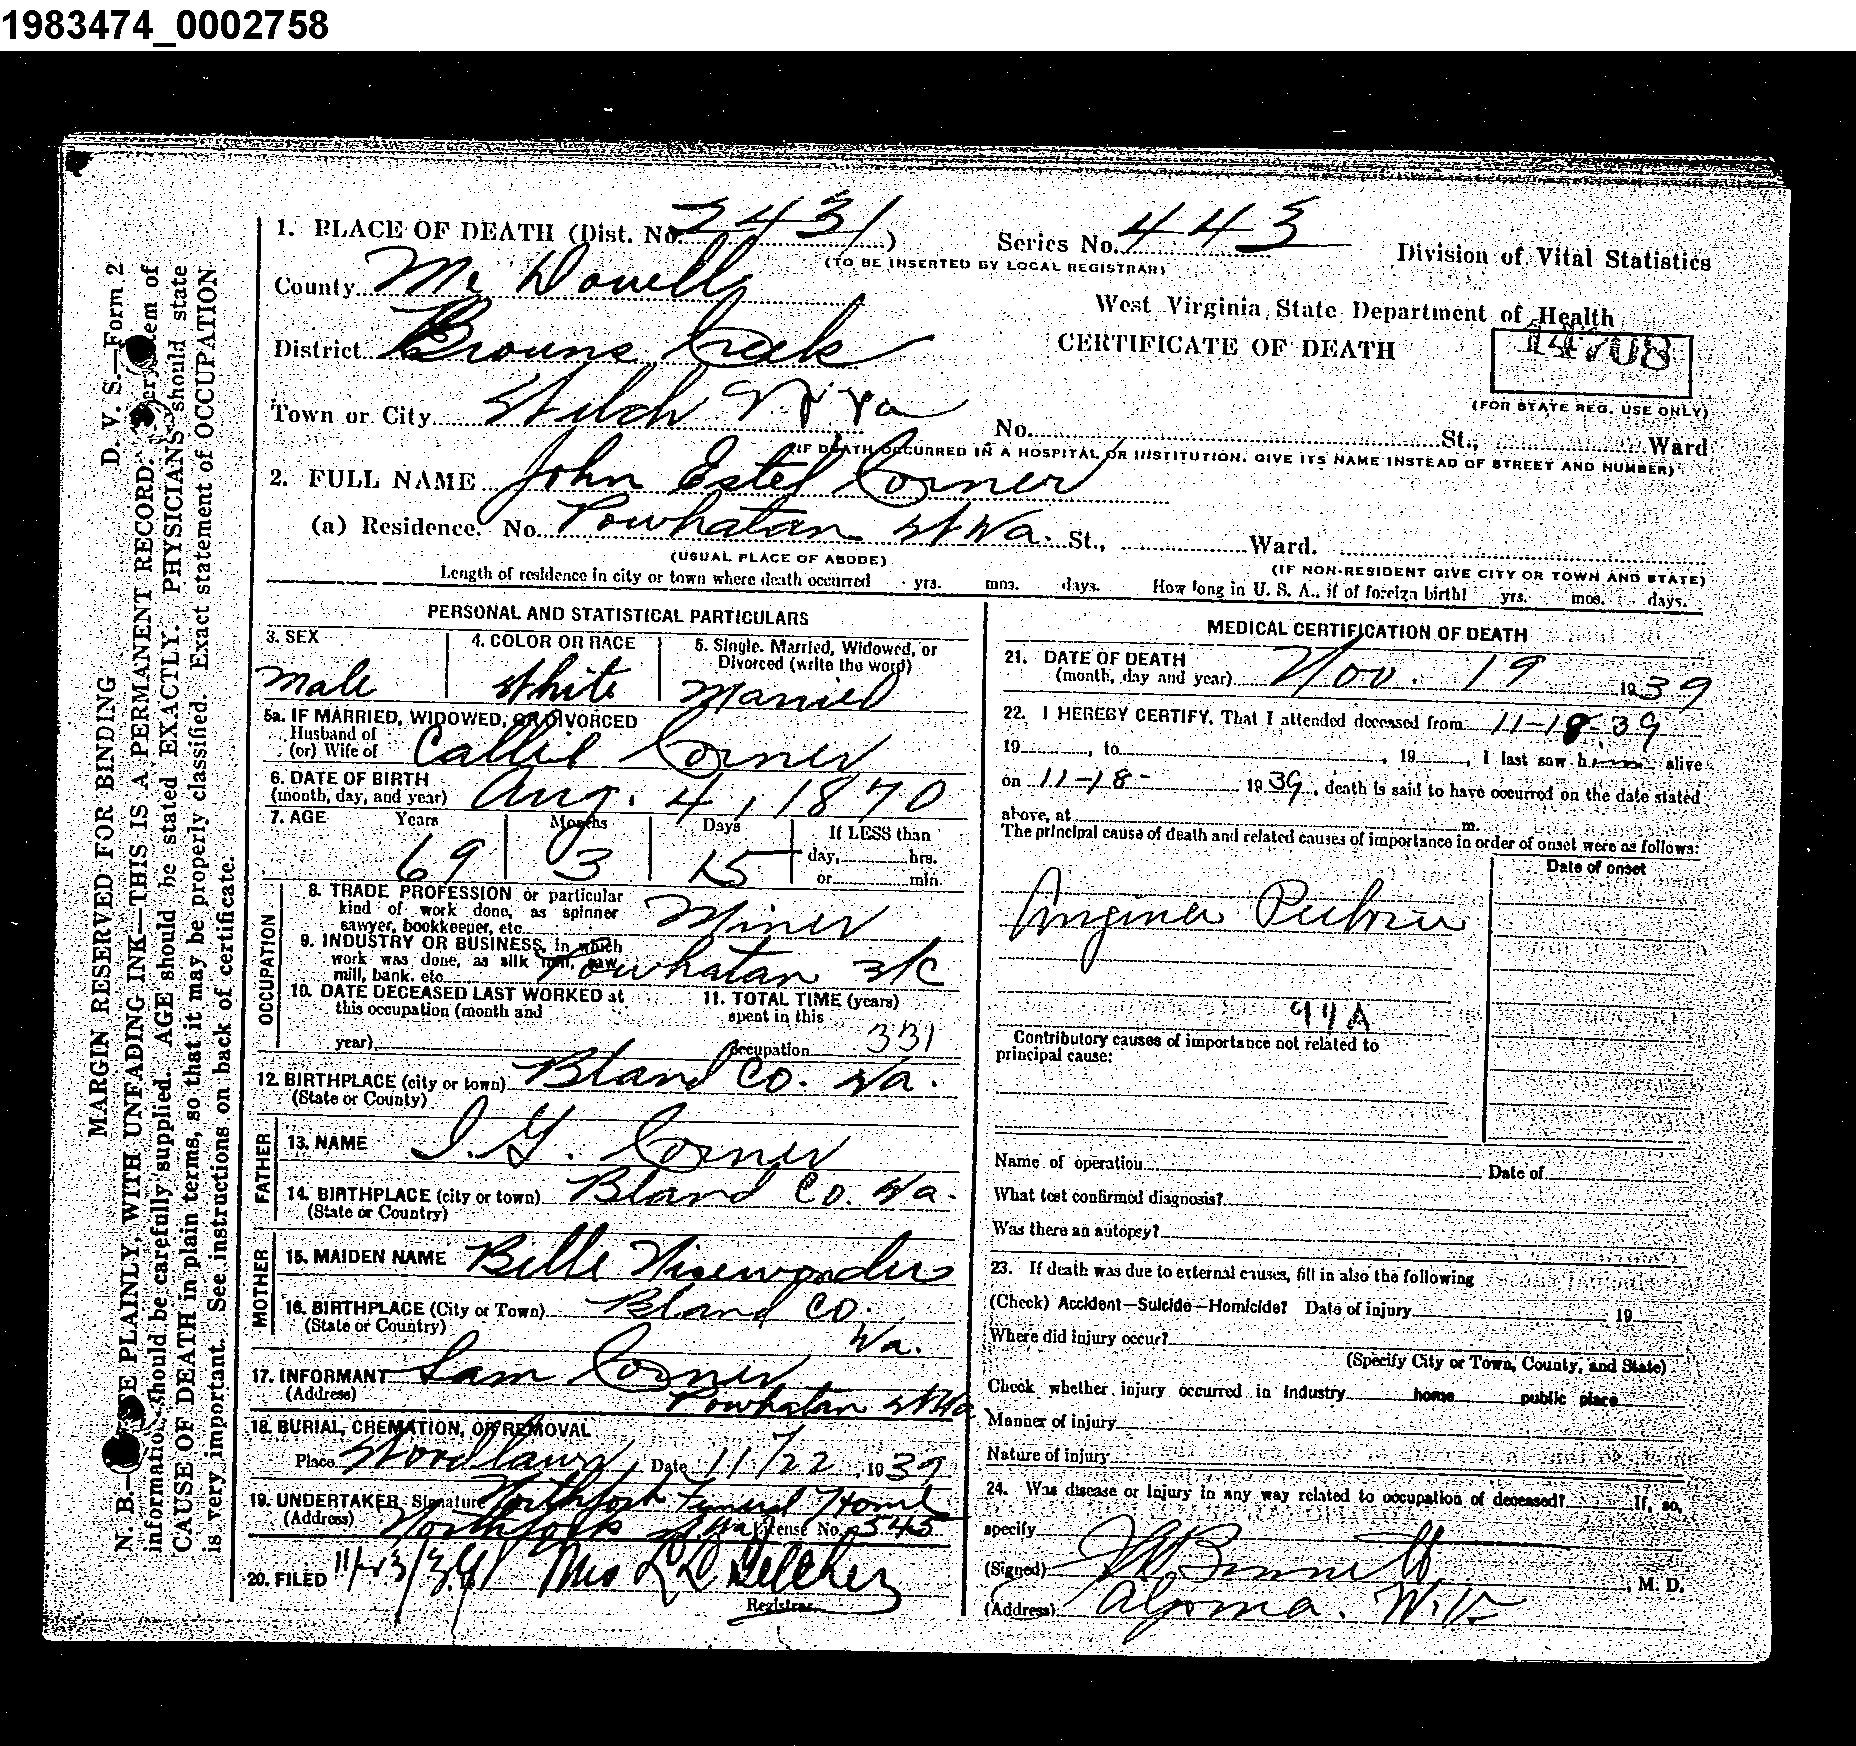 1983474_0002758
1. PLACE OF DEATH (Dist. No. 2431)
Series No. 443
(TO BE INSERTED BY LOCAL REGISTRAR)
Division of Vital Statistics
County Mc Dowell
West Virginia State Department of Health
District Browns Creek
CERTIFICATE OF DEATH
(FOR STATE REG. USE ONLY)
Town or City Welch W Va
No. St., Ward
(IF DEATH OCCURRED IN A HOSPITAL OR INSTITUTION, GIVE ITS NAME INSTEAD OF STREET AND NUMBER)
2. FULL NAME John Estel Corner
(a) Residence. No. Powhatan W Va. St., Ward.
(USUAL PLACE OF ABODE)
(IF NON-RESIDENT GIVE CITY OR TOWN AND STATE)
Length of residence in city or town where death occurred yrs. mos. days. How long in U. S. A., if of foreign birth? yrs. mos. days.
PERSONAL AND STATISTICAL PARTICULARS
3. SEX
Male
4. COLOR OR RACE
White
5. Single, Married, Widowed, or
Divorced (write the word)
Married
5a. IF MARRIED, WIDOWED, OR DIVORCED
Husband of
(or) Wife of Callie Corner
6. DATE OF BIRTH
(month, day, and year) Aug. 4, 1870
7. AGE Years Months Days If LESS than
69 3 15 day, hrs.
or min.
OCCUPATION
8. TRADE PROFESSION or particular
kind of work done, as spinner
sawyer, bookkeeper, etc. Miner
9. INDUSTRY OR BUSINESS in which
work was done, as silk mill, saw
mill, bank, etc. Powhatan
10. DATE DECEASED LAST WORKED at
this occupation (month and
year)
11. TOTAL TIME (years)
spent in this
occupation 331
12. BIRTHPLACE (city or town) Bland Co. Va.
(State or County)
FATHER
13. NAME I. G. Corner
14. BIRTHPLACE (city or town) Bland Co. Va.
(State or Country)
MOTHER
15. MAIDEN NAME Belle
16. BIRTHPLACE (City or Town) Bland Co.
(State or Country) Va.
17. INFORMANT Sam Corner
(Address) Powhatan W Va
18. BURIAL, CREMATION, OR REMOVAL
Place Woodlawn Date 11/22 1939
19. UNDERTAKER Signature Northfork Funeral Home
(Address) Northfork W Va License No. 545
20. FILED 11/23/39 Mrs L L
Registrar
MEDICAL CERTIFICATION OF DEATH
21. DATE OF DEATH
(month, day and year) Nov. 19 1939
22. I HEREBY CERTIFY, That I attended deceased from 11-18-39
19 , to , 19 , I last saw h alive
on 11-18- 1939, death is said to have occurred on the date stated
above, at m.
The principal cause of death and related causes of importance in order of onset were as follows:
Date of onset
Angina Pectoris
94A
Contributory causes of importance not related to
principal cause:
Name of operation Date of
What test confirmed diagnosis?
Was there an autopsy?
23. If death was due to external causes, fill in also the following
(Check) Accident—Suicide—Homicide? Date of injury 19
Where did injury occur?
(Specify City or Town, County, and State)
Check whether injury occurred in industry home public place
Manner of injury
Nature of injury
24. Was disease or injury in any way related to occupation of deceased? If, so,
specify
(Signed) Bennett, M. D.
(Address) Algoma. W. Va
D. V. S.—Form 2
MARGIN RESERVED FOR BINDING
PLAINLY, WITH UNFADING INK—THIS IS A PERMANENT RECORD. Every item of
information should be carefully supplied. AGE should be stated EXACTLY. PHYSICIANS should state
CAUSE OF DEATH in plain terms, so that it may be properly classified. Exact statement of OCCUPATION
is very important. See instructions on back of certificate.